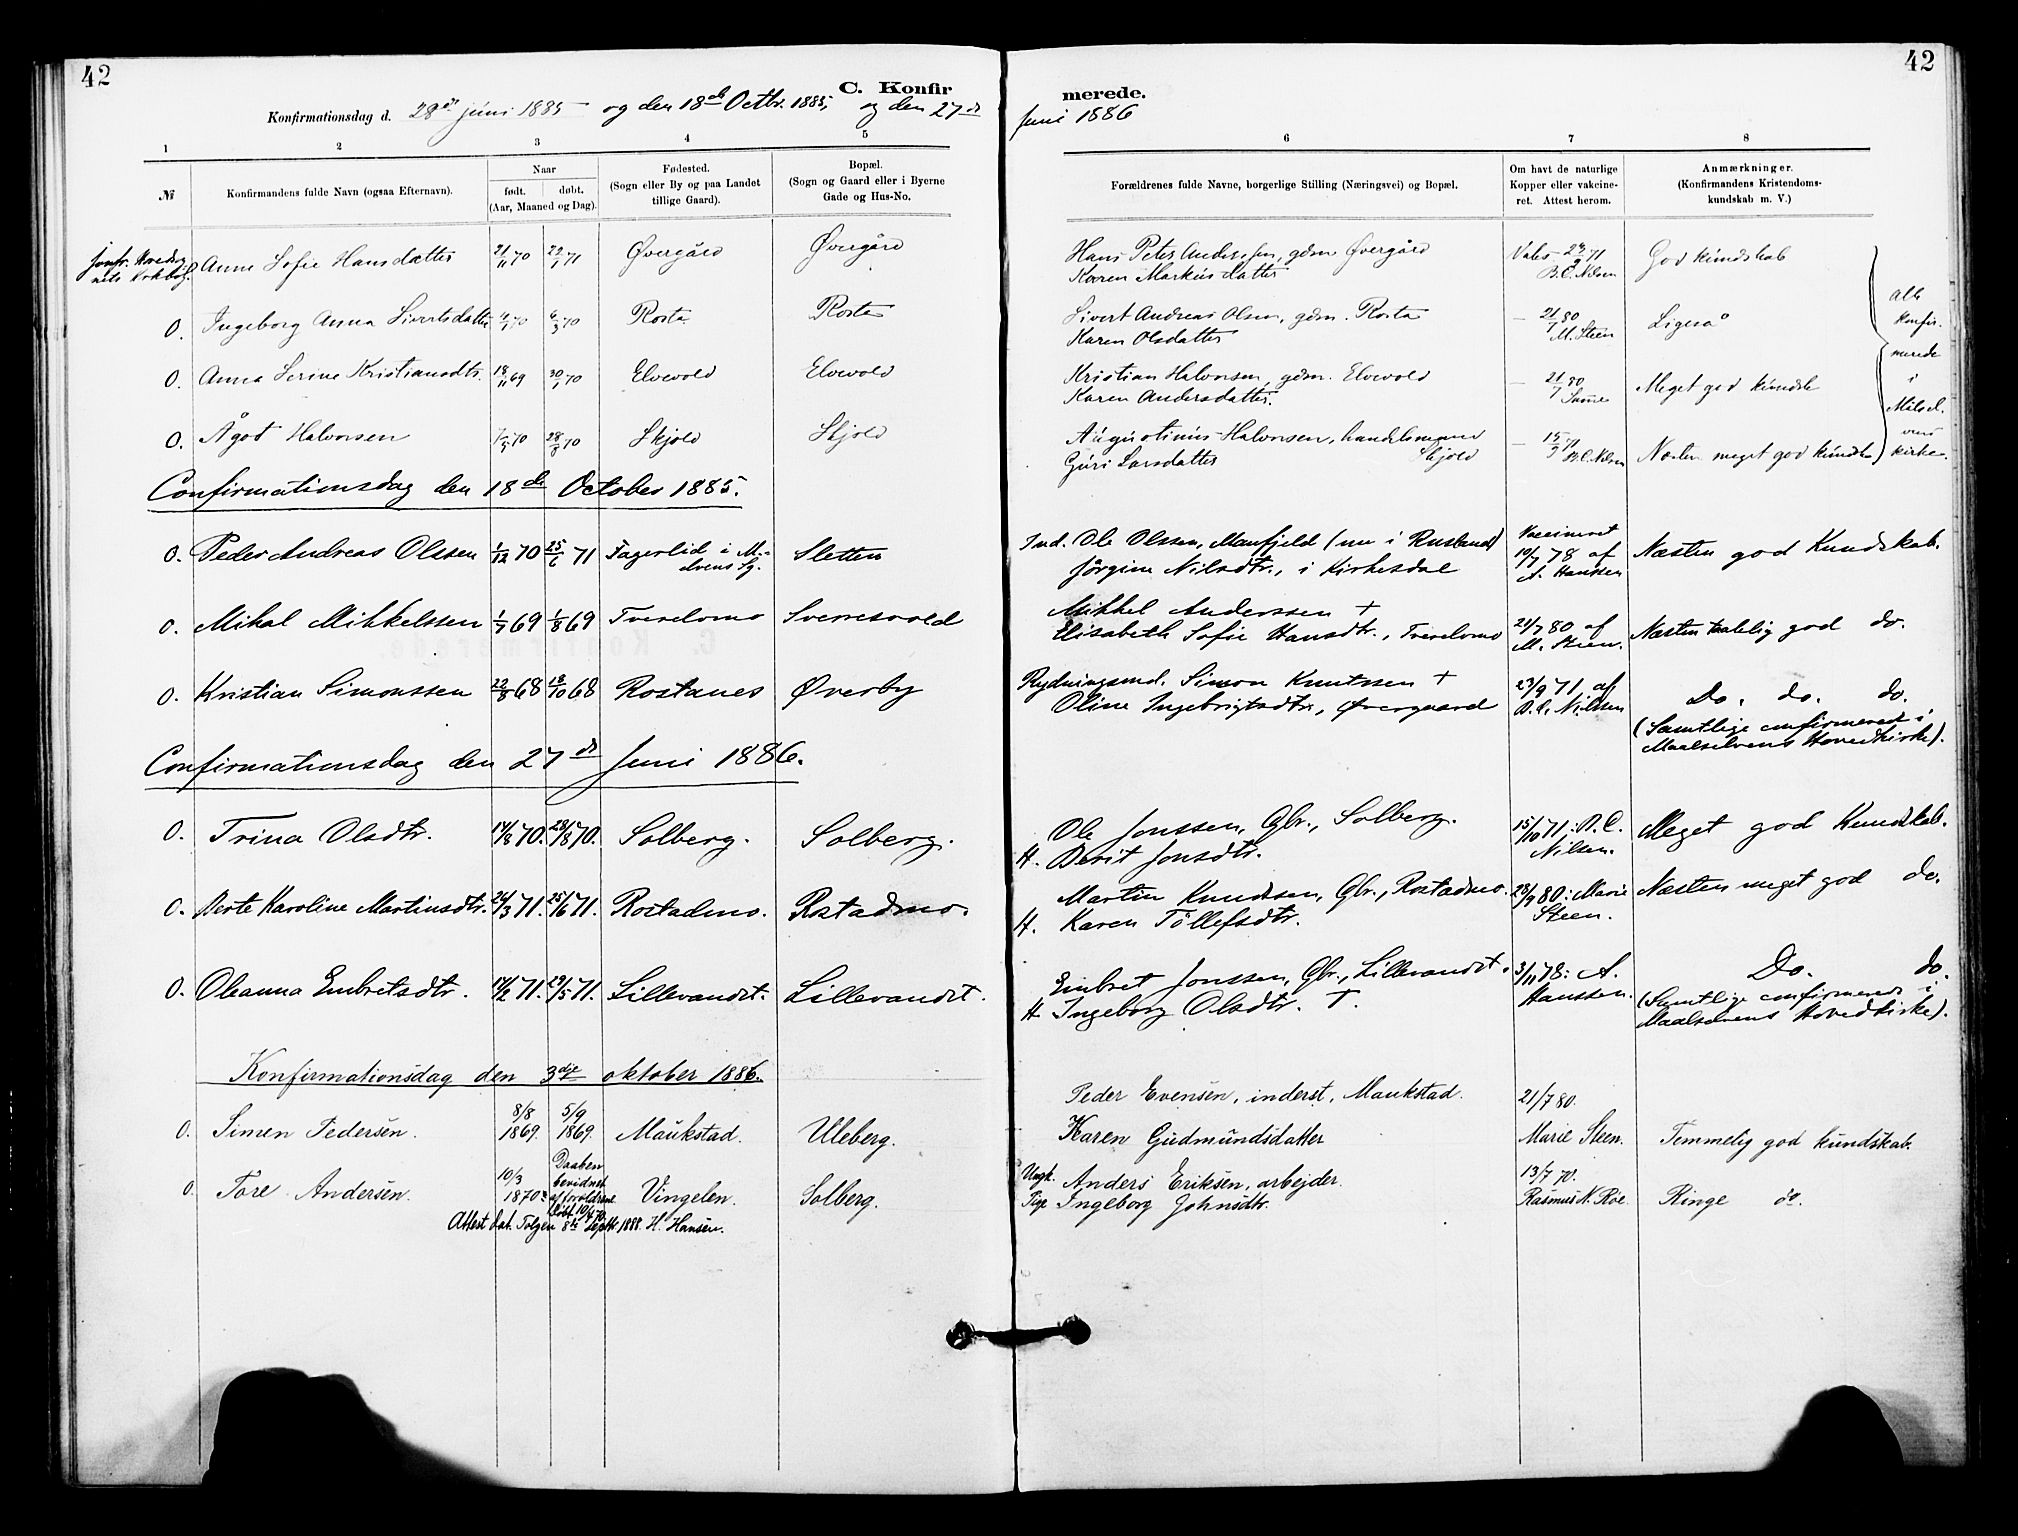 42
42
C. Konfir merede.
Konfirmationsdag d. 28de juni 1885 og den 18de Octbr. 1885, og den 27de Juni 1886
1 2 3 4 5 6 7 8
№
Konfirmandens fulde Navn (ogsaa Efternavn).
Naar
født. døbt.
(Aar, Maaned og Dag).
Fødested.
(Sogn eller By og paa Landet
tillige Gaard).
Bopæl.
(Sogn og Gaard eller i Byerne
Gade og Hus-No.
Forældrenes fulde Navne, borgerlige Stilling (Næringsvei) og Bopæl.
Om havt de naturlige
Kopper eller vakcine-
ret. Attest herom.
Anmærkninger.
(Konfirmandens Kristendoms-
kundskab m. V.)
Anne Sofie Hansdatter 21/11 70 22/1 71 Øvergård Øvergård Hans Peter Anderssen, gdm Øvergård 71 God kundskab
Karen Markusdatter B.C. Nilsen
O. Ingeborg Anna Sivertsdatter 70 6/3 70 Rosta Rosta Sivert Andreas Olsen, gdm. Rosta — 21/7 80 Ligeså
Karen Olsdatter M. Steen
O. Anna Serine Kristiansdtr. 18/11 69 30/1 70 Elvevold Elvevold Kristian Halvorsen, gdm. Elvevold — 21/7 80 Meget god kundsk
Karen Andersdatter. Samme
O. Ågot Halvorsen 7/5 70 28/8 70 Skjold Skjold Augustinus Halvorsen, handelsmand — 15/9 71 Næsten meget god kundsk
Guri Larsdatter Skjold B.C. Nilsen
alle
konfir-
merede
i
Målsel-
vens
kirke.
Confirmationsdag den 18de October 1885.
O. Peder Andreas Olssen 1/12 70 25/6 71 Fagerlid i M.- Sletten Ind. Ole Olssen, Maufjeld (nu i Rusland) Vaccineret Næsten god Kundskab.
elvens Sg. Jørgine Nilsdtr., i Kirkesdal 19/7 78 af
A. Hanssen
O. Mikal Mikkelssen 1/7 69 1/8 69 Tverelvmo Sverresvold Mikkel Anderssen + 21/7 80 af Næsten taalelig god do.
Elisabeth Sofie Hansdtr., Tverelvmo M. Steen.
O. Kristian Simonssen 22/8 68 18/10 68 Rostanes Øverby Rydningsmd. Simon Knutssen + 23/9 71 af Do. do. do.
Oline Ingebrigtsdtr., Øvergaard B.C. Nilssen
(Samtlige confirmeret i
Maalselvens Hovedkirke).
Confirmationsdag den 27de Juni 1886.
O. Trina Olsdtr. 14/8 70. 28/8 70. Solberg. Solberg. Ole Jonssen, Gbr., Solberg. 15/10 71: B.C. Meget god Kundskab.
H. Berit Jonsdtr. Nilsen.
O. Berte Karoline Martinsdtr. 26/3 71. 25/6 71. Rostadmo. Rostadmo. Martin Knudsen, Gbr., Rostadmo. 80: Marie Næsten meget god do.
H. Karen Tollefsdtr. Steen.
O. Oleanna Embretsdtr. 14/2 71. 29/5 71. Lillevandet. Lillevandet. Embret Jonssen, Gbr., Lillevandet. 3/11 78: A. Do. do.
H Ingeborg Olsdtr. †. Hanssen.
(Samtlige confirmerede i
Maalselvens Hovedkirke).
Konfirmationsdag den 3die oktober 1886.
O. Simen Pedersen. 8/8 1869. 5/9 1869. Maukstad. Uleberg. Peder Evensen, inderst, Maukstad. 21/7 80.
Karen Gudmundsdatter Marie Steen. Temmelig god kundskab.
O. Tore Andersen. 10/3 1870. Daaben bevidnet af forældrene døbt 10/4 70. Vingelen. Solberg. Ungk. Anders Eriksen, arbejder. 13/7 70.
Pige Ingeborg Johnsdtr. Rasmus N. Røe. Ringe do.
Attest dat. Tolgen 8de Septbr. 1888. H. Hansen.